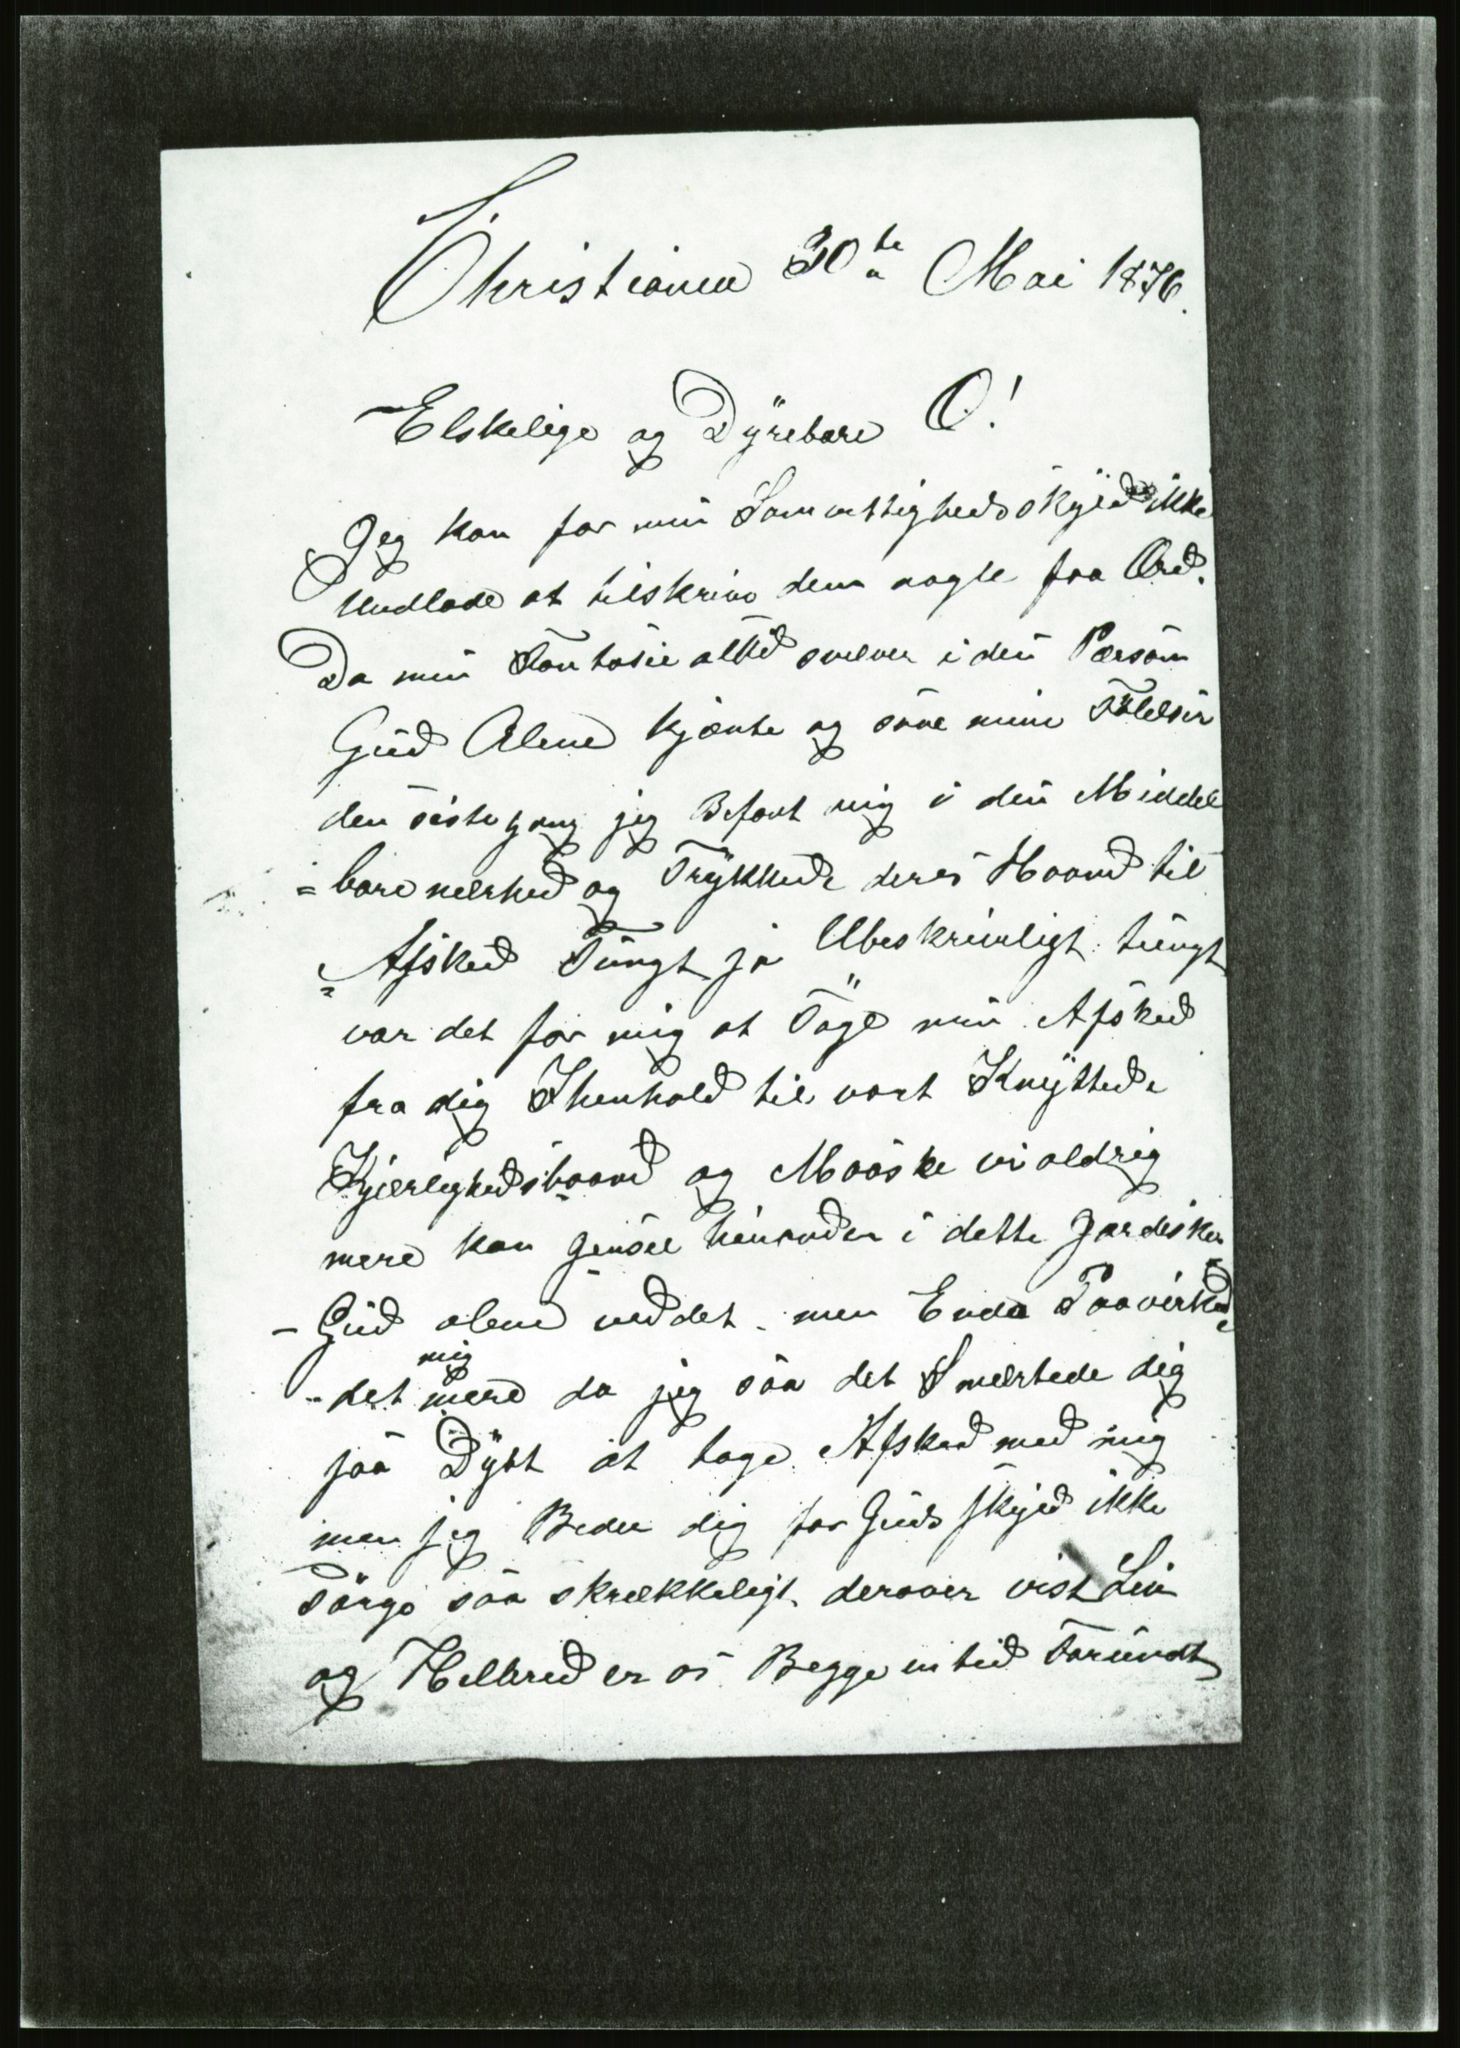 Christiania 30te Mai 1876.
Elskelige og Dÿrebare O!
Jeg kan for min Samvittigheds skyld ikke
Undlade at tilskrive dem nogle faa Ord.
Da min Fantasie altid svæver i din Person
Gud Alene kjænte og saae mine Følelser
den siste gang jeg Befant mig i din Middel
=bare nærhed og Trÿkkede deres Haand til
Afsked Tungt ja Ubeskriveligt tungt
var det for mig at Tage min Afsked
fra dig Ihenhold til vort Knÿttede
Kjærlighedsbaand og Maaske vi aldrig
mere kan gensee hinanden i dette Jordiske
- Gud alene ved det. men Enda Paavirkede
det mig mere da jeg saa det Smærtede dig
saa Dÿbt at tage Afsked med mig
men jeg Beder dig for Guds skyld ikke
sørge saa skrækkeligt derover vist Liv
og Helbred er os Begge en tid Forundt